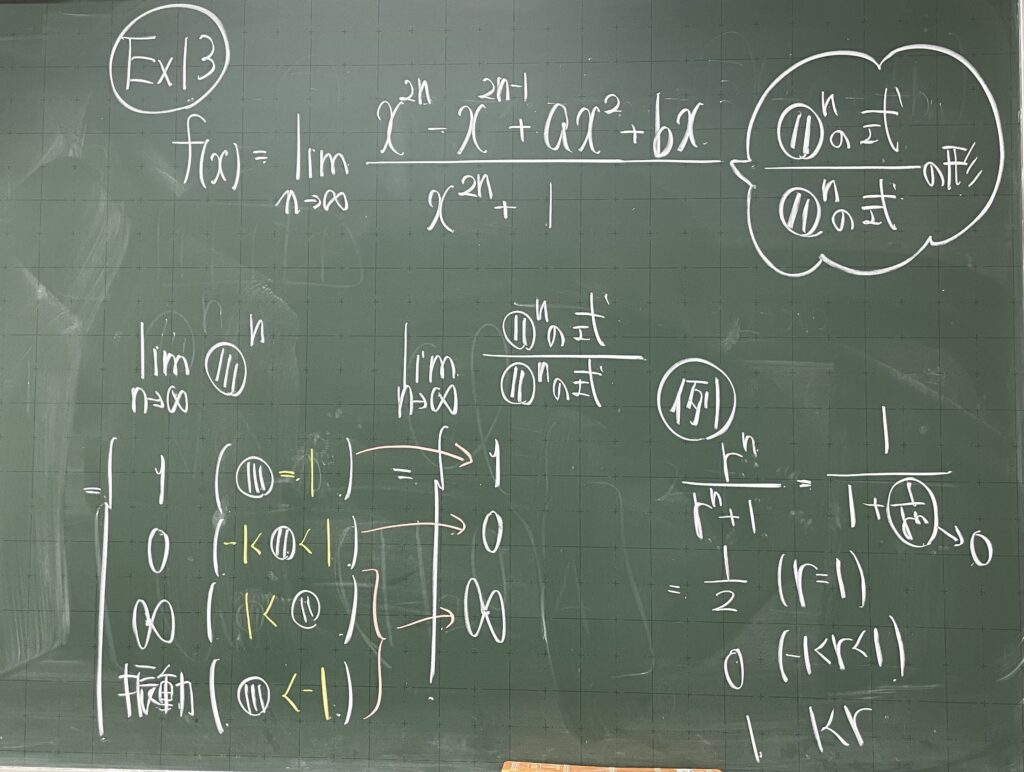 Ex13
f(x) = lim n→∞ (x^2n - x^2n-1 + ax^2 + bx) / (x^2n + 1)
◍^n の式 / ◍^n の式 の形
lim n→∞ ◍^n
= { 1 (◍ = 1)
0 (-1 < ◍ < 1)
∞ (1 < ◍)
振動 (◍ < -1)
lim n→∞ ◍^n の式 / ◍^n の式
= { 1
0
∞
例
r^n / (r^n + 1) = 1 / (1 + 1/r^n) → 0
= 1/2 (r=1)
0 (-1<r<1)
1 1<r